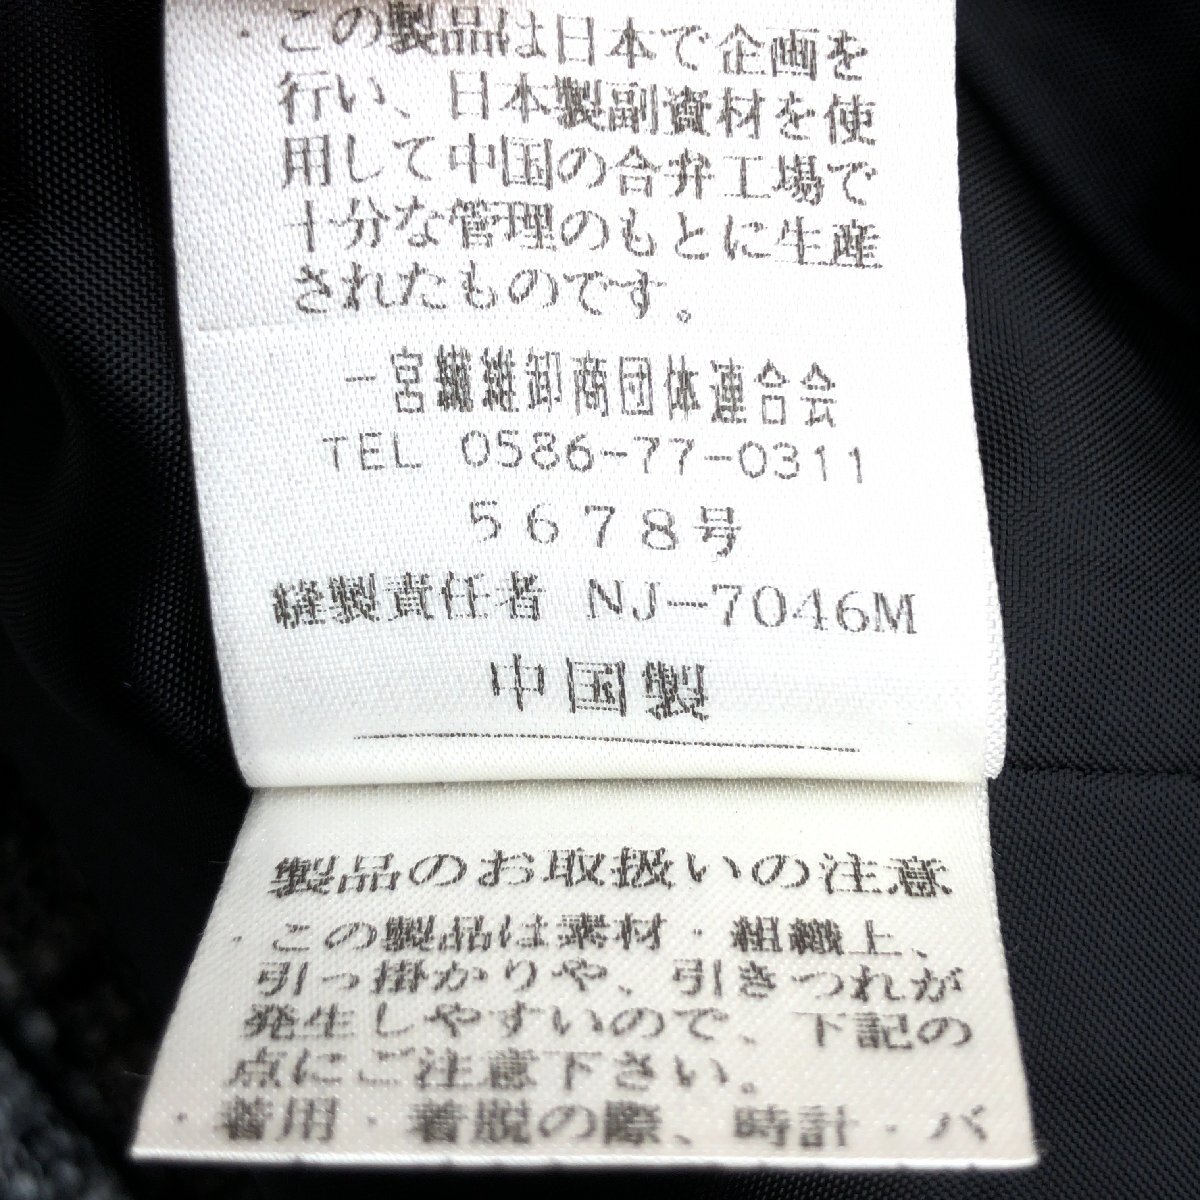 ・この製品は日本で企画を
行い、日本製副資材を使
用して中国の合弁工場で
十分な管理のもとに生産
されたものです。
一宮繊維卸商団体連合会
TEL 0586-77-0311
5678号
縫製責任者 NJ-7046M
中国製
製品のお取扱いの注意
・この製品は素材・組織上、
引っ掛かりや、引きつれが
発生しやすいので、下記の
点にご注意下さい。
・着用・着脱の際、時計・バ